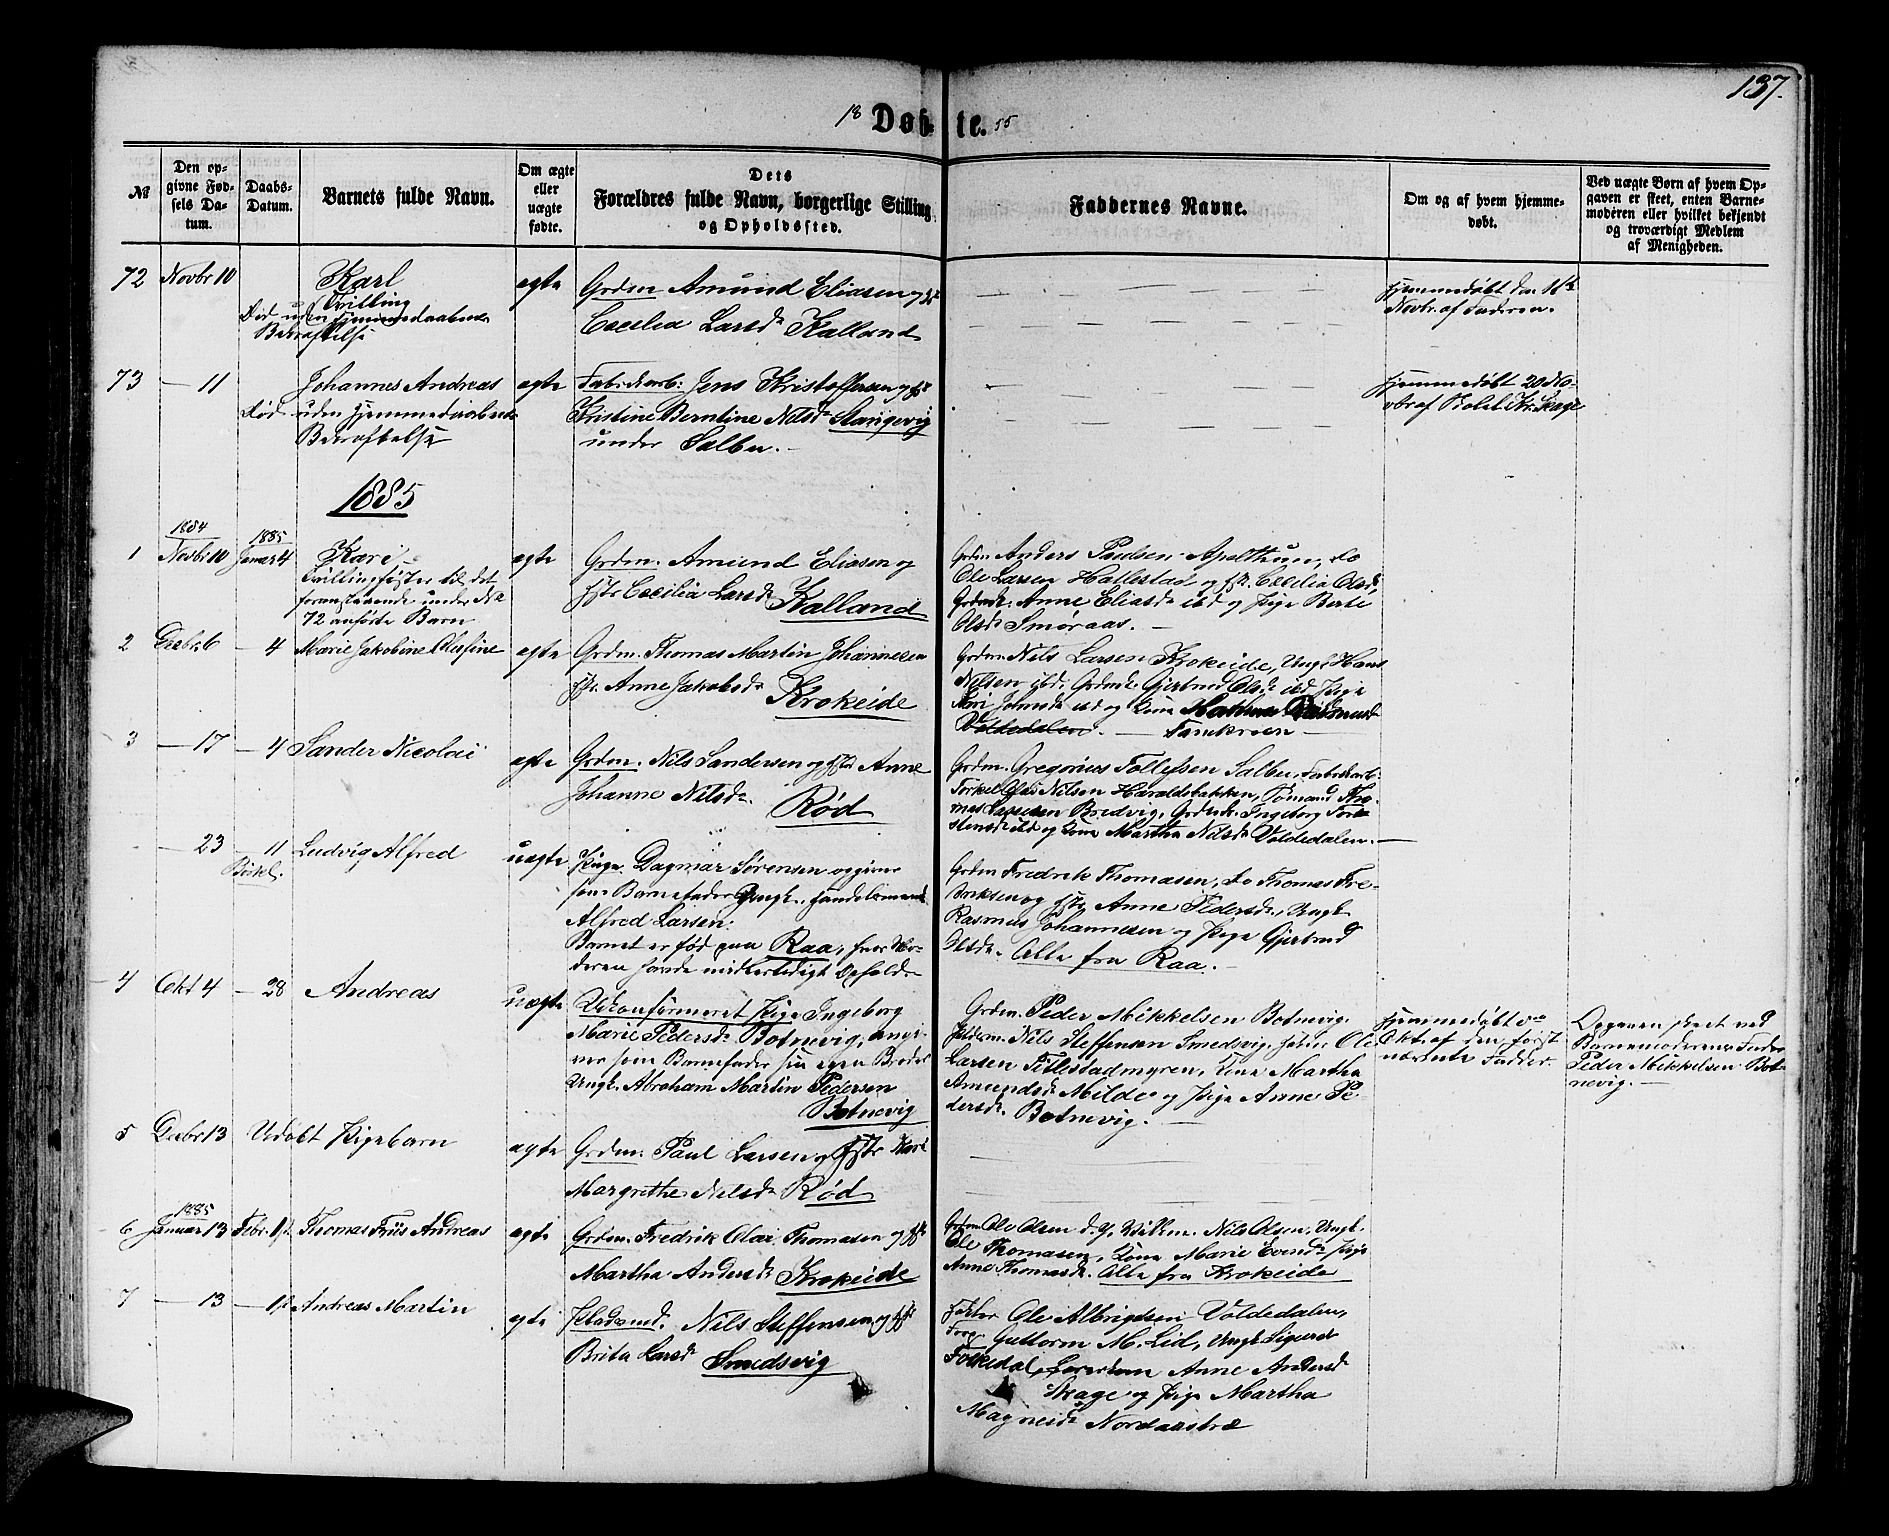 137.
18 Døbte. 55
№
Den opgivne Fødsels Datum.
Daabs-Datum.
Barnets fulde Navn.
Om ægte eller uægte fødte.
Dets Forældres fulde Navn, borgerlige Stilling og Opholdssted.
Faddernes Navne.
Om og af hvem hjemmedøbt.
Ved uægte Børn af hvem Opgaven er skeet, enten Barnemoderen eller hvilket bekjendt og troværdigt Medlem af Menigheden.
72 Novbr 10 Karl ægte Grdm Amund Eliasen og
Tvilling
Død uden Hjemmedaabens
Bekræftelse
Cecilia Larsdr Kalland
Hjemmedøbt den
Novbr af Faderen.
73 — 11 Johannes Andreas ægte Fabrikarb: Jens Kristoffersen og
Død uden Hjemmedaabens
Bekræftelse
Kristine Berntine Nilsdr Stangevig
under Salbu.
Hjemmedøbt 20 No-
vbr af Bolel Kr. Skage
1885
1884 1885
1 Novbr 10 Januar 4 Kari ægte Grdm. Amund Eliasen og
Tvillingsøster til det
foranstaaende under No
72 anførte Barn
Hstr Cecilia Larsdr Kalland
Grdm Anders Paulsen Apelthun, do
Ole Larsen Hallestad og Hstr. Cecilia Olsdr
Grdmk. Anne Eliasdr ibd og Pige Berte
Olsdr Smøraas. —
2 Decbr 6 — 4 Marie Jakobine Olufine ægte Grdm. Thomas Martin Johannesen
Hstr. Anne Jakobsdr
Krokeide
Grdm. Nils Larsen Krokeide, Ungk. Hans
Nilsen ibd. Grdmk. Gjertrud Olsdr ibd Pige
ibd og Kone Rasmusdr
Voldedalen. — —
3 — 17 — 4 Sander Nicolai ægte Grdm. Nils Sandersen og Hstr Anne
Johanne Nilsdr. Rød
Grdm. Gregorius Tollefsen Salbu. Fabrikarb:
Torkel Olai Nilsen Haraldsbakken, Sømand Tho-
mas Bredvig, Grdmk. Ingeborg Tor-
stensdr ibd og Kone Martha Nilsdr Voldedalen. —
— 23 — 11 Ludvig Alfred uægte Pige Dagmar Sørensen opgiver
Birkel.
som Barnefader Ungk., Handelsmand
Alfred Larsen.
Barnet er fød paa Raa, hvor Mo-
deren havde midlertidigt Ophold.
Grdm Fredrik Thomasen, do Thomas Fre-
driksen og Hstr Anne Pedersdr, Ungk
Rasmus Johannesen og Pige Gjertrud
Olsdr. Alle fra Raa. —
4 Okt 4 — 28 Andreas uægte Ukonfirmeret Pige Ingeborg
Marie Pedersdr Botnevig, angi-
ver som Barnefader sin egen Broder
Ungk. Abraham Martin Pedersen
Botnevig
Grdm. Peder Mikkelsen Botnevig.
Nils Steffensen Smedsvig. Ole
Larsen Titlestadmyren, Kone Martha
Amundsdr Milde og Pige Anne Pe-
dersdr. Botnevig. —
Hjemmedøbt
Okt. af den først
nævnte Fadder.
Opgaven skeet ved
Barnemoderens Fader
Peder Mikkelsen Bot-
nevig. —
5 Decbr 13 Udøbt Pigebarn ægte Grdm. Paul Larsen og Hstr Kari
Margrethe Nilsdr Rød
1885
6 Januar 13 Febr. Thomas Friis Andreas ægte Grdm. Fredrik Olai Thomasen og
Martha Andersdr Krokeide
Grdm Ole Olsen d.y. Nils Olsen. Ungk.
Ole Thomasen, Kone Marie Pige
Anne Thomasdr. Alle fra Krokeide
7 — 13 — Andreas Martin ægte Nils Steffensen og
Brita Larsdr Smedsvig
Ole Albrigtsen Voldedalen,
Guttorm M. Lid, Ungk Sigurd
Folkedal, Anne Andersdr
Skage og Pige Martha
Magnesdr Nordaasbræ